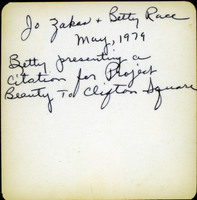 Jo Zakas + Betty Race
May, 1979
Betty presenting a
citation for Project
Beauty To Clifton Square